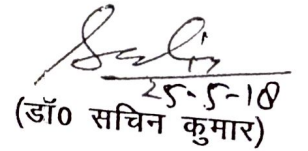 25-5-18
(डॉ0 सचिन कुमार)